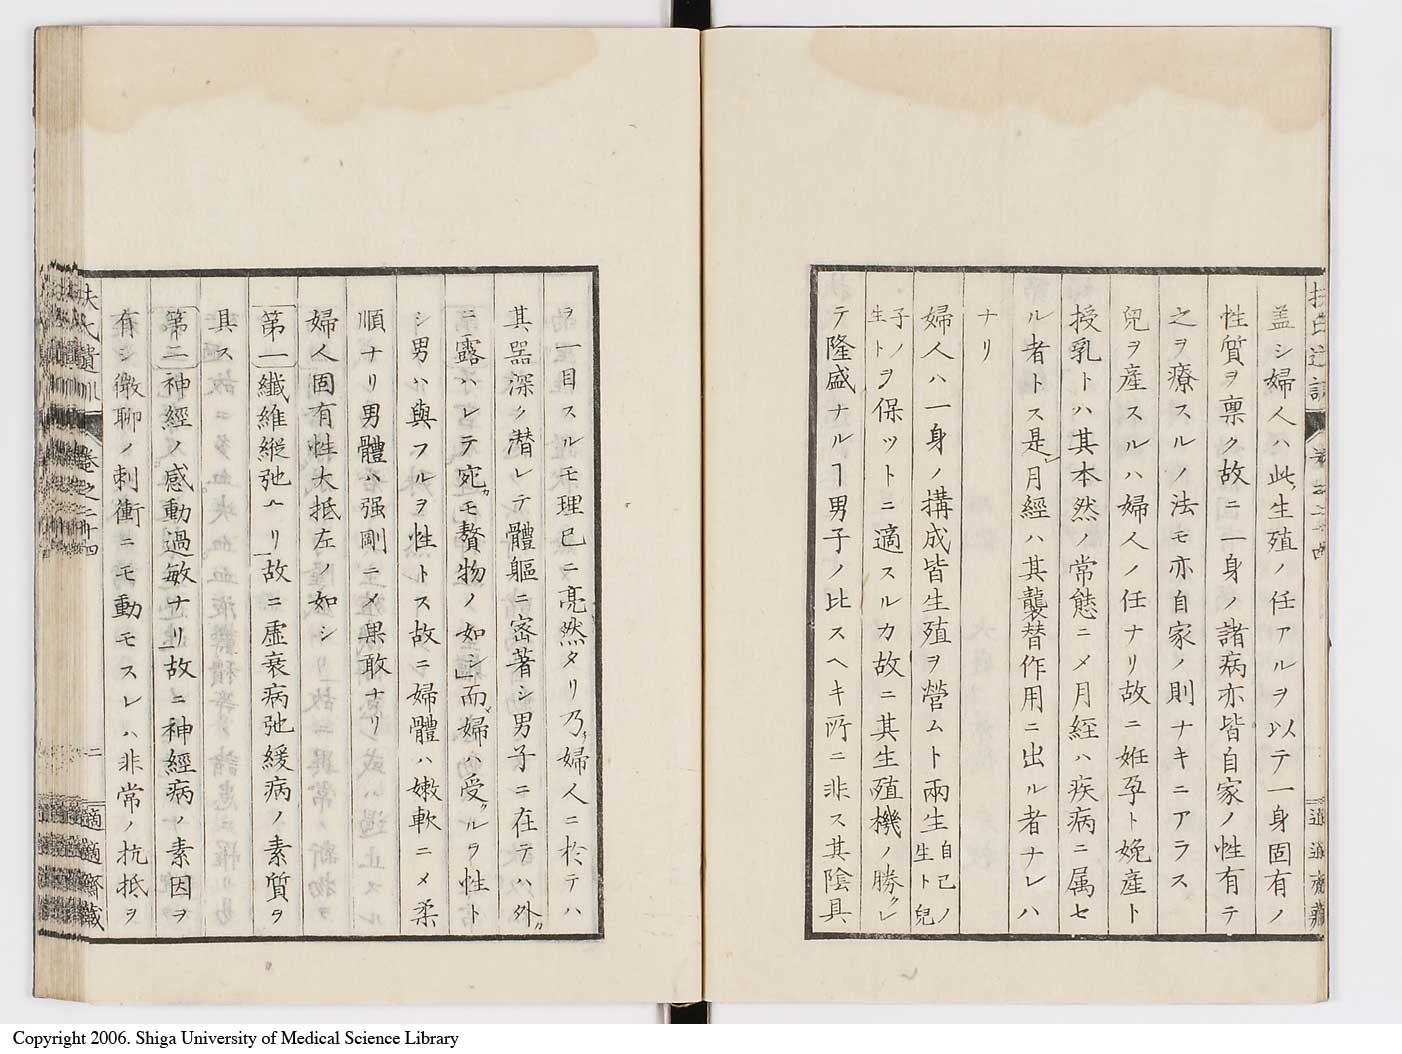 蓋シ婦人ハ此生殖ノ任アルヲ以テ一身固有ノ
性質ヲ禀ク故ニ一身ノ諸病亦皆自家ノ性有テ
之ヲ療スルノ法モ亦自家ノ則ナキニアラス
兒ヲ産スルハ婦人ノ任ナリ故ニ妊孕ト娩産ト
授乳トハ其本然ノ常態ニ〆月經ハ疾病ニ属セ
ル者トス是レ月經ハ其襲替作用ニ出ル者ナレハ
ナリ
婦人ハ一身ノ搆成皆生殖ヲ營ムト兩生自己ノ生ト兒
子ノ生トヲ保ツトニ適スルカ故ニ其生殖機ノ勝レ
テ隆盛ナルヿ男子ノ比スヘキ所ニ非ス其陰具
ヲ一目スルモ理已ニ亮然タリ乃チ婦人ニ於テハ
其噐深ク潜レテ體軀ニ密著シ男子ニ在テハ外
ニ露ハレテ宛モ贅物ノ如シ」而婦ハ受クルヲ性ト
シ男ハ與フルヲ性トス故ニ婦體ハ嫩軟ニ〆柔
順ナリ男體ハ强剛ニ〆果敢ナリ
婦人固有性大抵左ノ如シ
第一纖維縦弛ヘリ」故ニ虚衰病弛緩病ノ素質ヲ
具ス
第二神經ノ感動過敏ナリ」故ニ神經病ノ素因ヲ
有シ微聊ノ刺衝ニモ動モスレハ非常ノ抗抵ヲ
扶氏遺訓
卷之二十四
二
適適齋藏